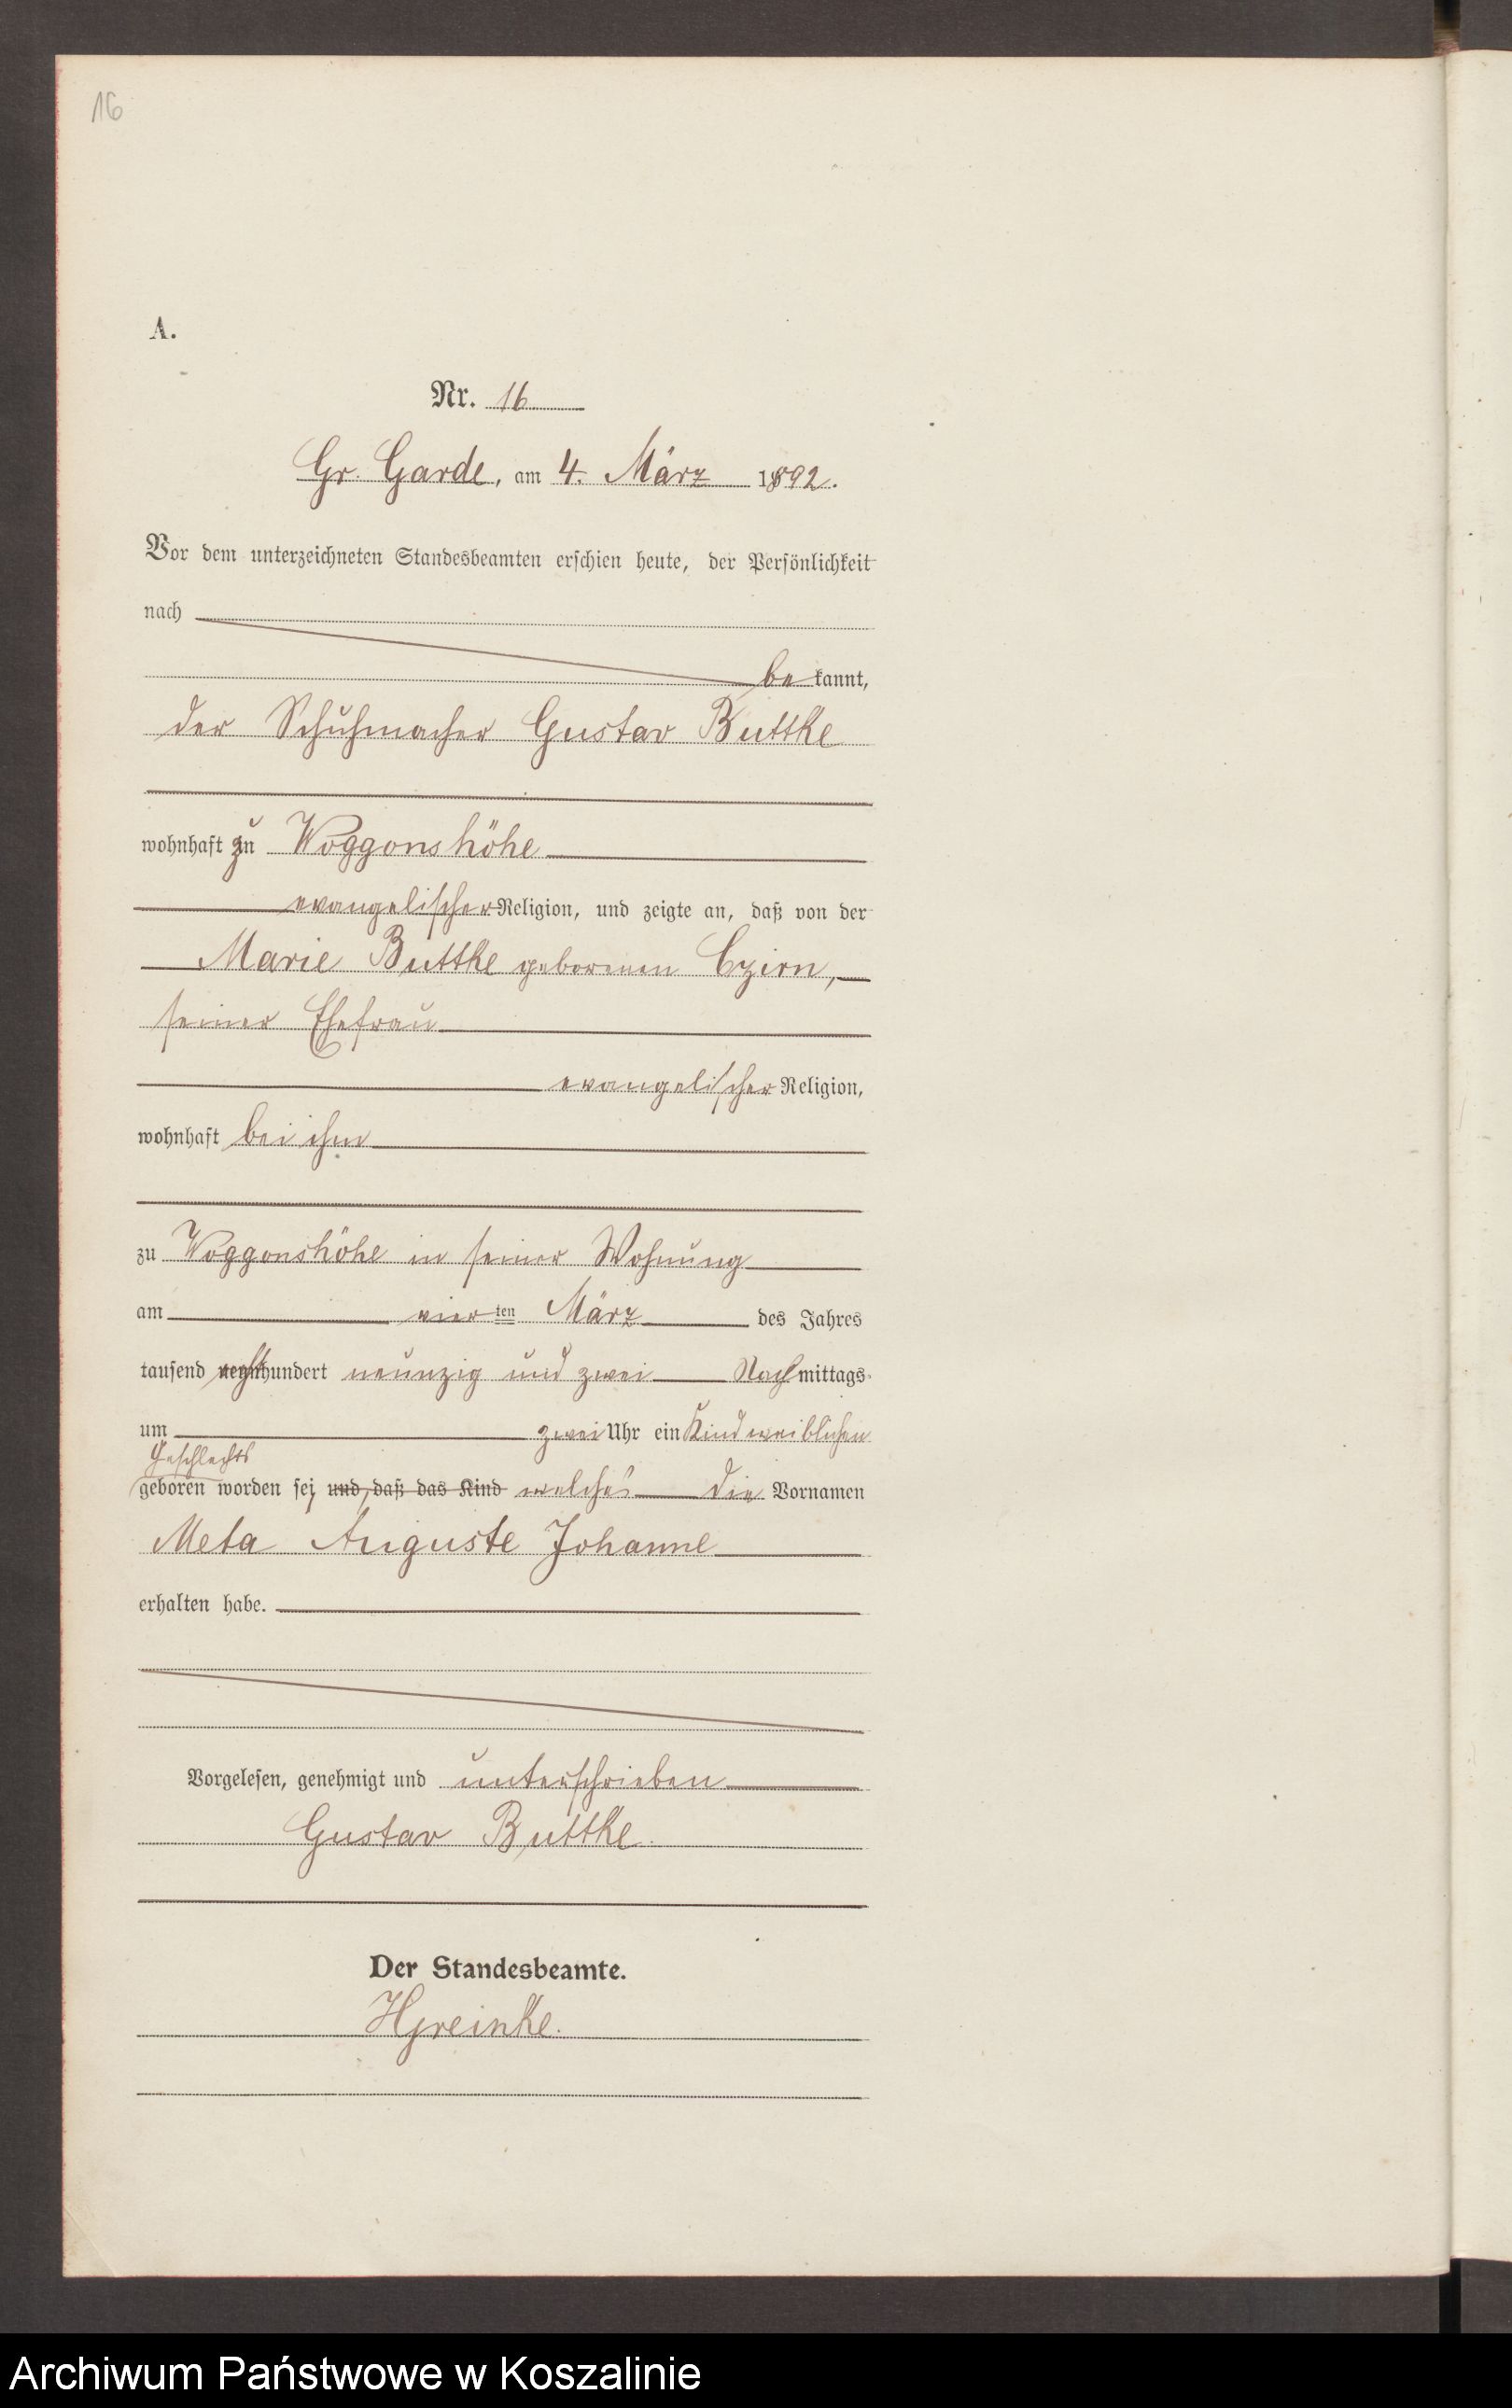 16
A.
Nr. 16
Gr. Garde, am 4. März 1892.
Vor dem unterzeichneten Standesbeamten erschien heute, der Persönlichkeit
nach
be kannt,
der Schuhmacher Gustav Buttke
wohnhaft zu Woggonshöhe
evangelischer Religion, und zeigte an, daß von der
Marie Buttke geborenen Czirn,
seiner Ehefrau
evangelischer Religion,
wohnhaft bei ihm
zu Woggonshöhe in seiner Wohnung
am vier ten März des Jahres
tausend achthundert neunzig und zwei Nach mittags
um zwei Uhr ein Kind weiblichen
Geschlechts
geboren worden sei, und, daß das Kind welches die Vornamen
Meta Auguste Johanne
erhalten habe.
Vorgelesen, genehmigt und unterschrieben
Gustav Buttke.
Der Standesbeamte.
Archiwum Państwowe w Koszalinie